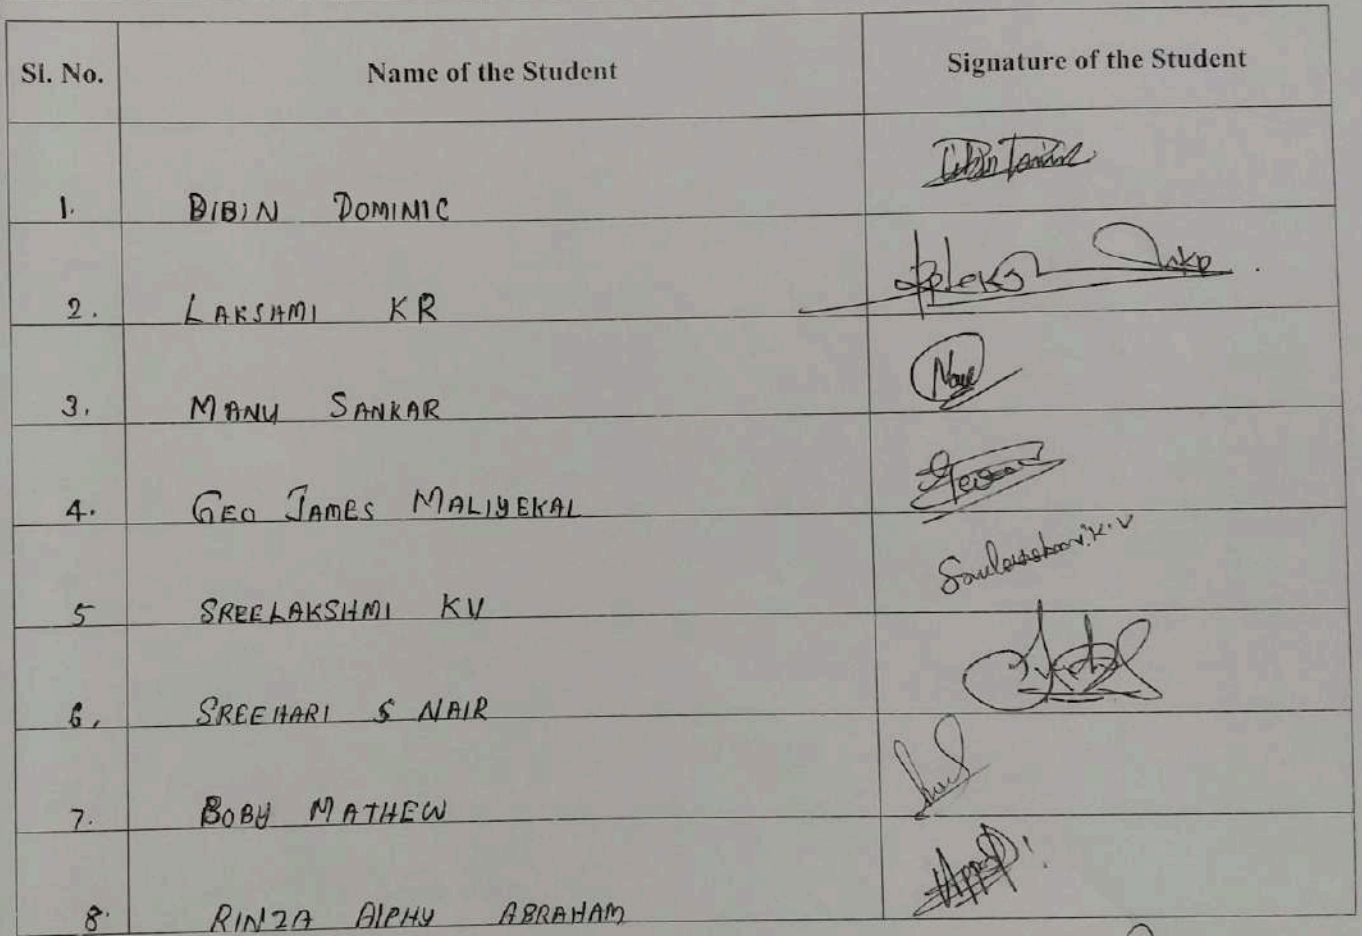 Sl. No. Name of the Student Signature of the Student
1. BIBIN DOMINIC
2. LAKSHMI KR
3. MANU SANKAR
4. GEO JAMES MALIYEKAL
5 SREELAKSHMI KV K.V
6. SREEHARI S NAIR
7. BOBY MATHEW
8. RINZA ALPHY ABRAHAM